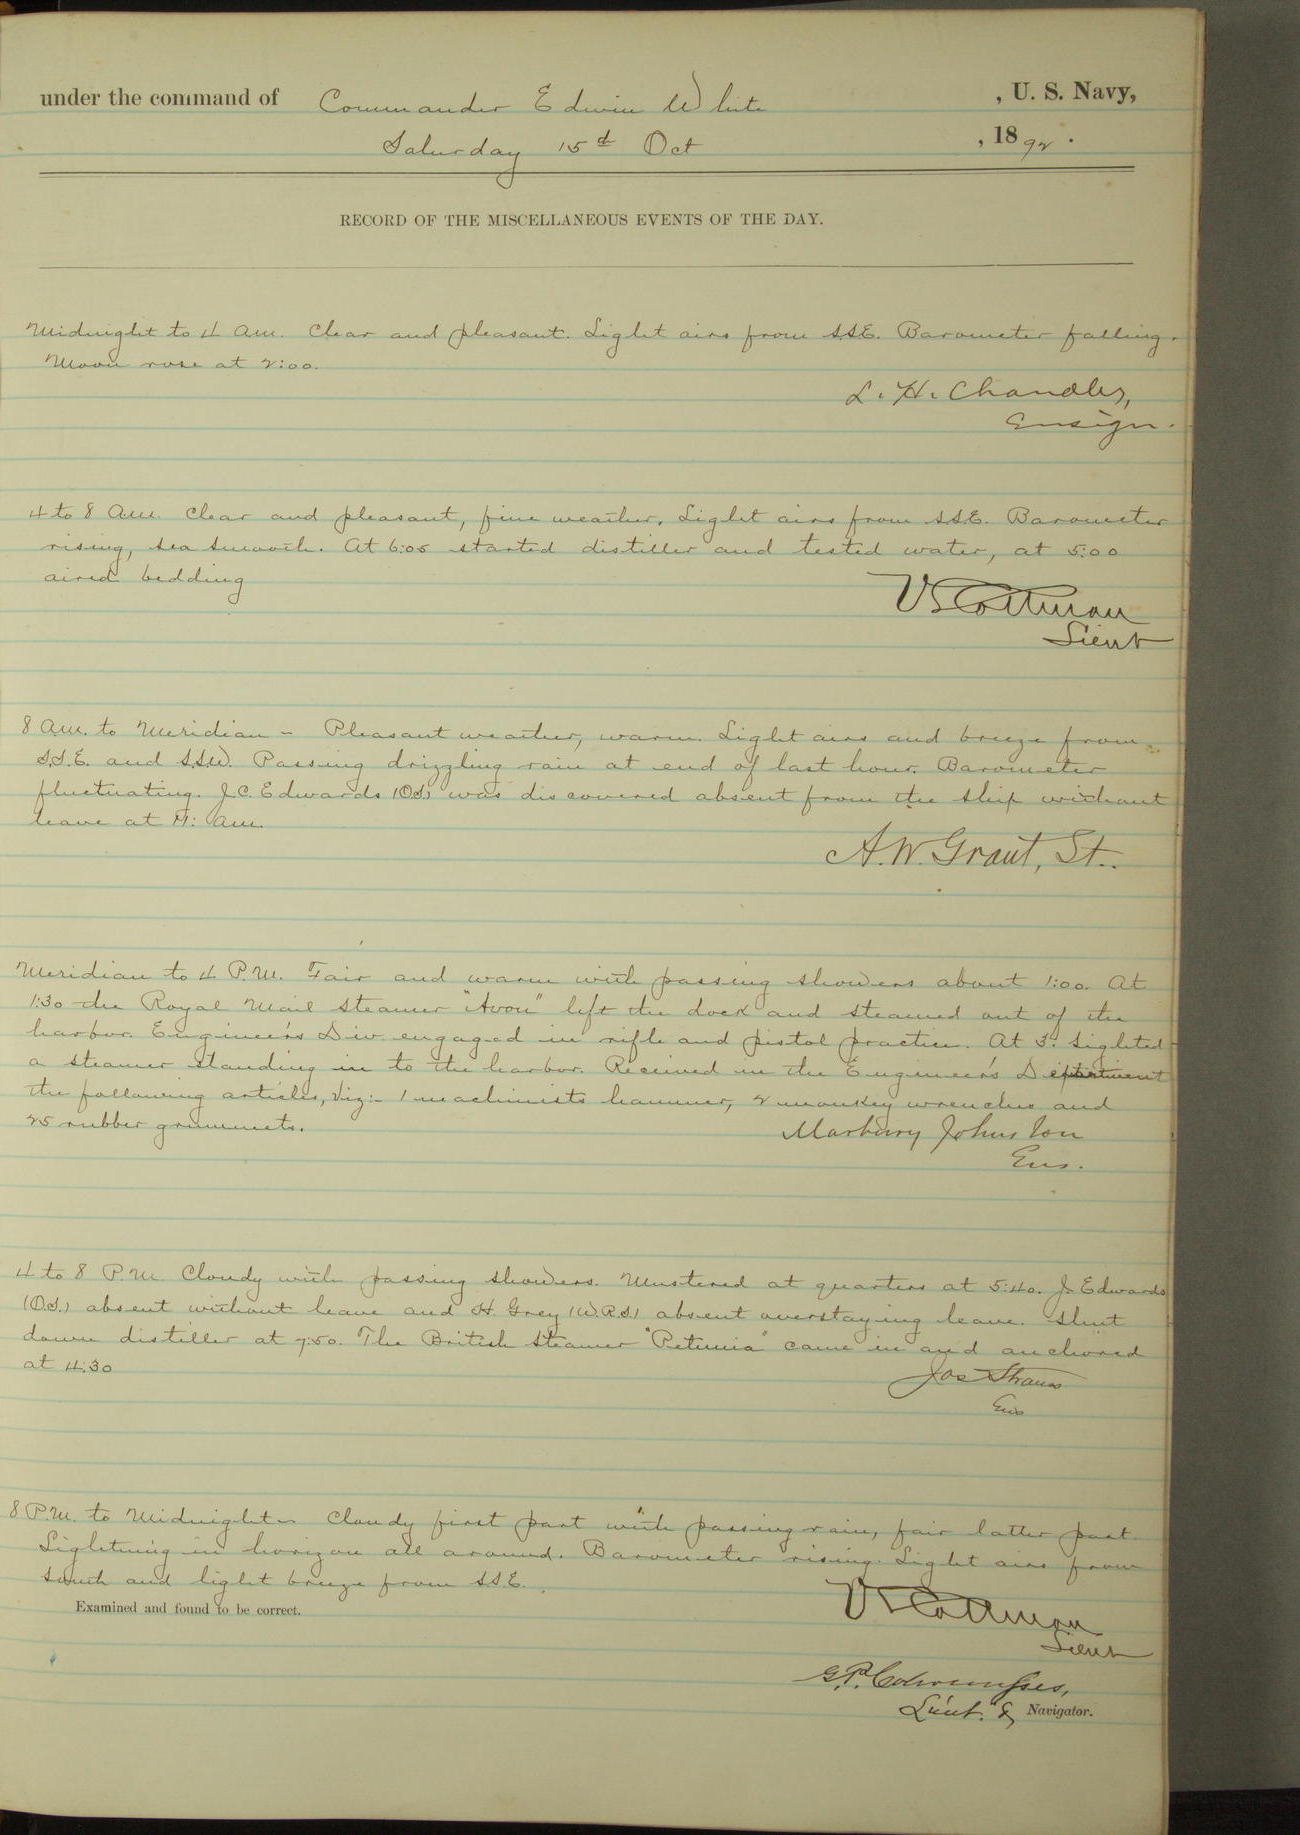 under the command of Commander Edwin White , U. S. Navy,
Saturday 15th Oct , 1892.
RECORD OF THE MISCELLANEOUS EVENTS OF THE DAY.
Midnight to 4 am. Clear and pleasant. Light airs from SSE. Barometer falling.
Moon rose at 2:00.
L. H. Chandler,
Ensign.
4 to 8 a.m. Clear and pleasant, fine weather. Light airs from SSE. Barometer
rising, sea smooth. At 6:05 started distiller and tested water, at 5:00
aired bedding
V S Cottman
Lieut
8 a.m. to Meridian - Pleasant weather, warm. Light airs and breeze from
S.S.E. and S.S.W. Passing drizzling rain at end of last hour. Barometer
fluctuating. J.C. Edwards (O.S.) was discovered absent from the ship without
leave at 4: am.
A. W. Grant, Lt..
Meridian to 4 P.M. Fair and warm with passing showers about 1:00. At
1:30 the Royal Mail steamer "Avon" left the dock and steamed out of the
harbor. Engineer's Div. engaged in rifle and pistol practice. At 3: sighted
a steamer standing in to the harbor. Received in the Engineer's Department
the following articles, viz:- 1 machinists hammer, 2 monkey wrenches and
25 rubber grummets.
Marbury Johnston
Ens.
4 to 8 P.M. Cloudy with passing showers. Mustered at quarters at 5:40. J. Edwards
(O.S.) absent without leave and H. Grey (W.R.S.) absent overstaying leave. Shut
down distiller at 7:50. The British steamer "Petunia" came in and anchored
at 4:30
Jos Strauss
Ens
8 P.M. to Midnight - Cloudy first part with passing rain, fair latter part.
Lightning in horizon all around. Barometer rising. Light airs from
South and light breeze from SSE.
Examined and found to be correct.
V S Cottman
Lieut
G. P. Colvocoresses,
Lieut. & Navigator.